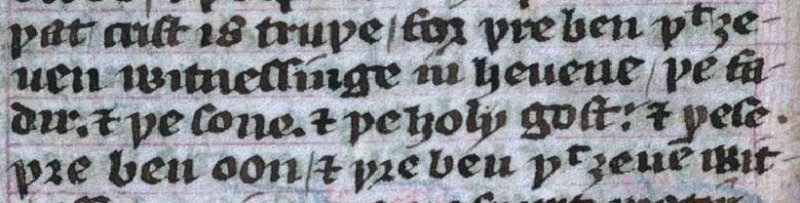 þat crist is truþe / for þre ben þᵗ ȝe-
uen witnessinge in heuene / þe fa-
dir. ⁊ þe sone. ⁊ þe holy gost: ⁊ þese
þre ben oon / ⁊ þre ben þᵗ ȝeuē wit-